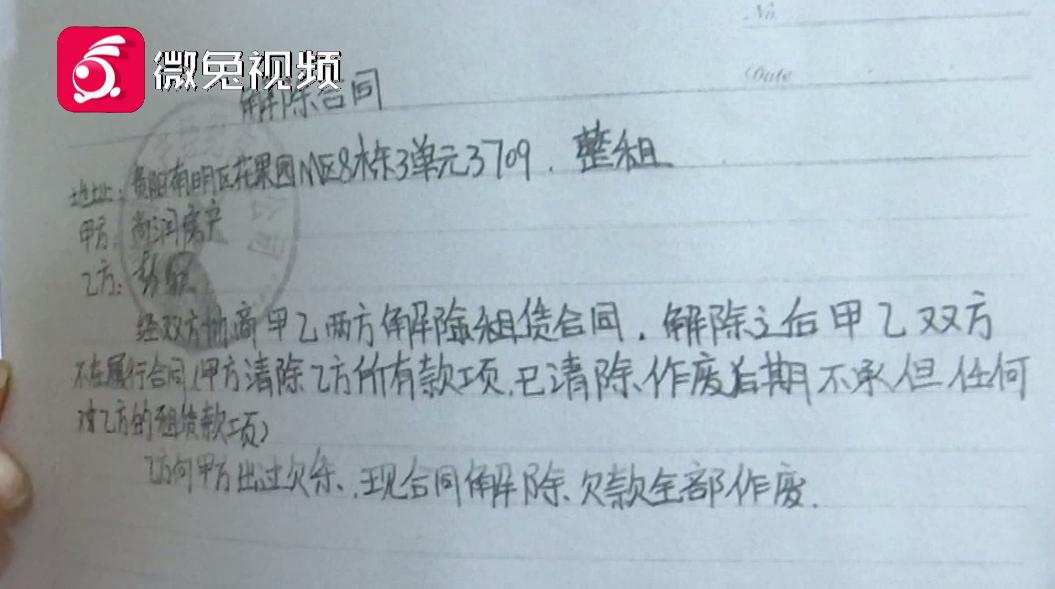 No.
微兔视频
Date
解除合同
地址:贵阳南明区花果园M区8栋3单元3709.整租
甲方:尚润房产
乙方:彭
经双方协商甲乙两方解除租赁合同.解除之后甲乙双方
不在履行合同(甲方清除乙方所有款项.已清除、作废后期不承但任何
对乙方的租赁款项)
乙方向甲方出过欠条.现合同解除、欠款全部作废.